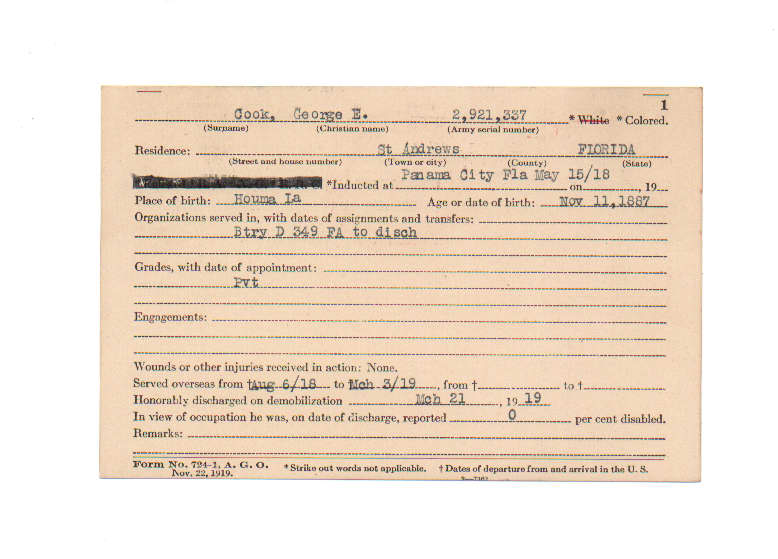 1
Cook, George E. 2,921,337 * White * Colored.
(Surname) (Christian name) (Army serial number)
Residence: St Andrews FLORIDA
(Street and house number) (Town or city) (County) (State)
Panama City Fla May 15/18
*Inducted at on , 19
Place of birth: Houma La Age or date of birth: Nov 11,1887
Organizations served in, with dates of assignments and transfers:
Btry D 349 FA to disch
Grades, with date of appointment:
Pvt
Engagements:
Wounds or other injuries received in action: None.
Served overseas from †Aug 6/18 to †Mch 3/19, from † to †
Honorably discharged on demobilization Mch 21, 19 19
In view of occupation he was, on date of discharge, reported 0 per cent disabled.
Remarks:
Form No. 724-1, A. G. O. * Strike out words not applicable. † Dates of departure from and arrival in the U. S.
Nov. 22, 1919.